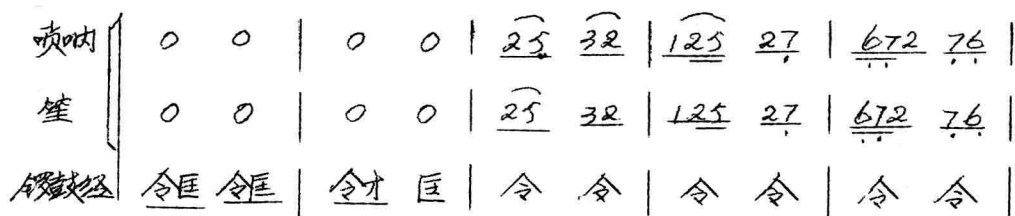 唢呐 0 0 | 0 0 | 25 32 | 125 27 | 672 76 |
笙 0 0 | 0 0 | 25 32 | 125 27 | 672 76 |
锣鼓经 令匡 令匡 | 令才 匡 | 令 令 | 令 令 | 令 令 |